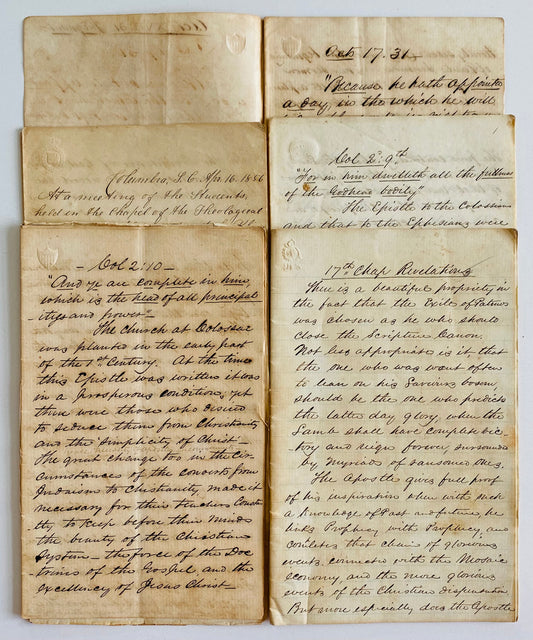 Acts 17.31
"Because he hath appointed
a day, in the which he will
Columbia, S.C. Apr. 16. 1886
At a meeting of the Students,
held in the Chapel of the Theological
Col 2d. 9th
"For in him dwelleth all the fullness
of the Godhead bodily"
The Epistle to the Colossians
and that to the Ephesians were
- Col 2:10 -
"And ye are complete in him,
which is the head of all principal
ities and power"-
The Church at Colossae
was planted in the early part
of the Century. At the time
this Epistle was written it was
in a prosperous condition, yet
there were those who desired
to seduce them from Christianity
and the simplicity of Christ-
The great change too in the cir-
cumstances of the converts from
Judaism to Christianity made it
necessary for their teachers Constan
tly to keep before their minds
the beauty of the Christian
System - the force of the Doc
trines of the Gospel and the
excellency of Jesus Christ-
17th Chap Revelations
There is a beautiful propriety in
the fact that the Exile of Patmos
was chosen as he who should
close the Scripture Canon.
Not less appropriate is it that
the one who was wont often
to lean on his Saviours bosom,
should be the one who predicts
the latter day glory, when the
Lamb shall have complete vic-
tory and reign forever surrounded
by Myriads of ransomed ones.
The Apostle gives full proof
of his inspiration when with such
a Knowledge of Past and future, he
links Prophecy with Prophecy, and
that chain of glorious
events, connected with the Mosaic
economy, and the more glorious
events of the Christian dispensation
But more especially does the Apostle